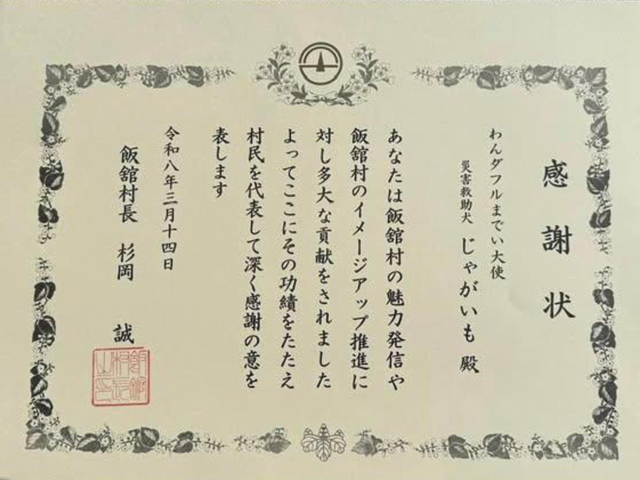 感謝状
わんダフルまでい大使
災害救助犬 じゃがいも 殿
あなたは飯舘村の魅力発信や
飯舘村のイメージアップ推進に
対し多大な貢献をされました
よってここにその功績をたたえ
村民を代表して深く感謝の意を
表します
令和八年三月十四日
飯舘村長 杉岡 誠
飯舘
村長
之印